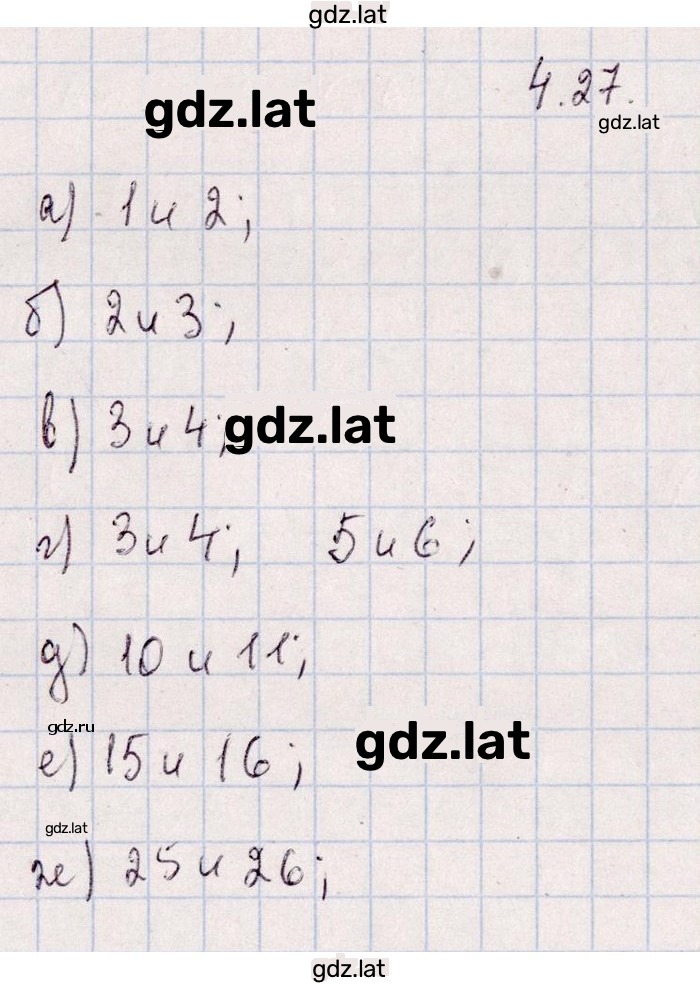 gdz.lat
4.27.
gdz.lat
gdz.lat
а) 1 и 2;
б) 2 и 3;
в) 3 и 4;
gdz.lat
г) 3 и 4; 5 и 6;
д) 10 и 11;
gdz.ru
е) 15 и 16;
gdz.lat
gdz.lat
ж) 25 и 26;
gdz.lat